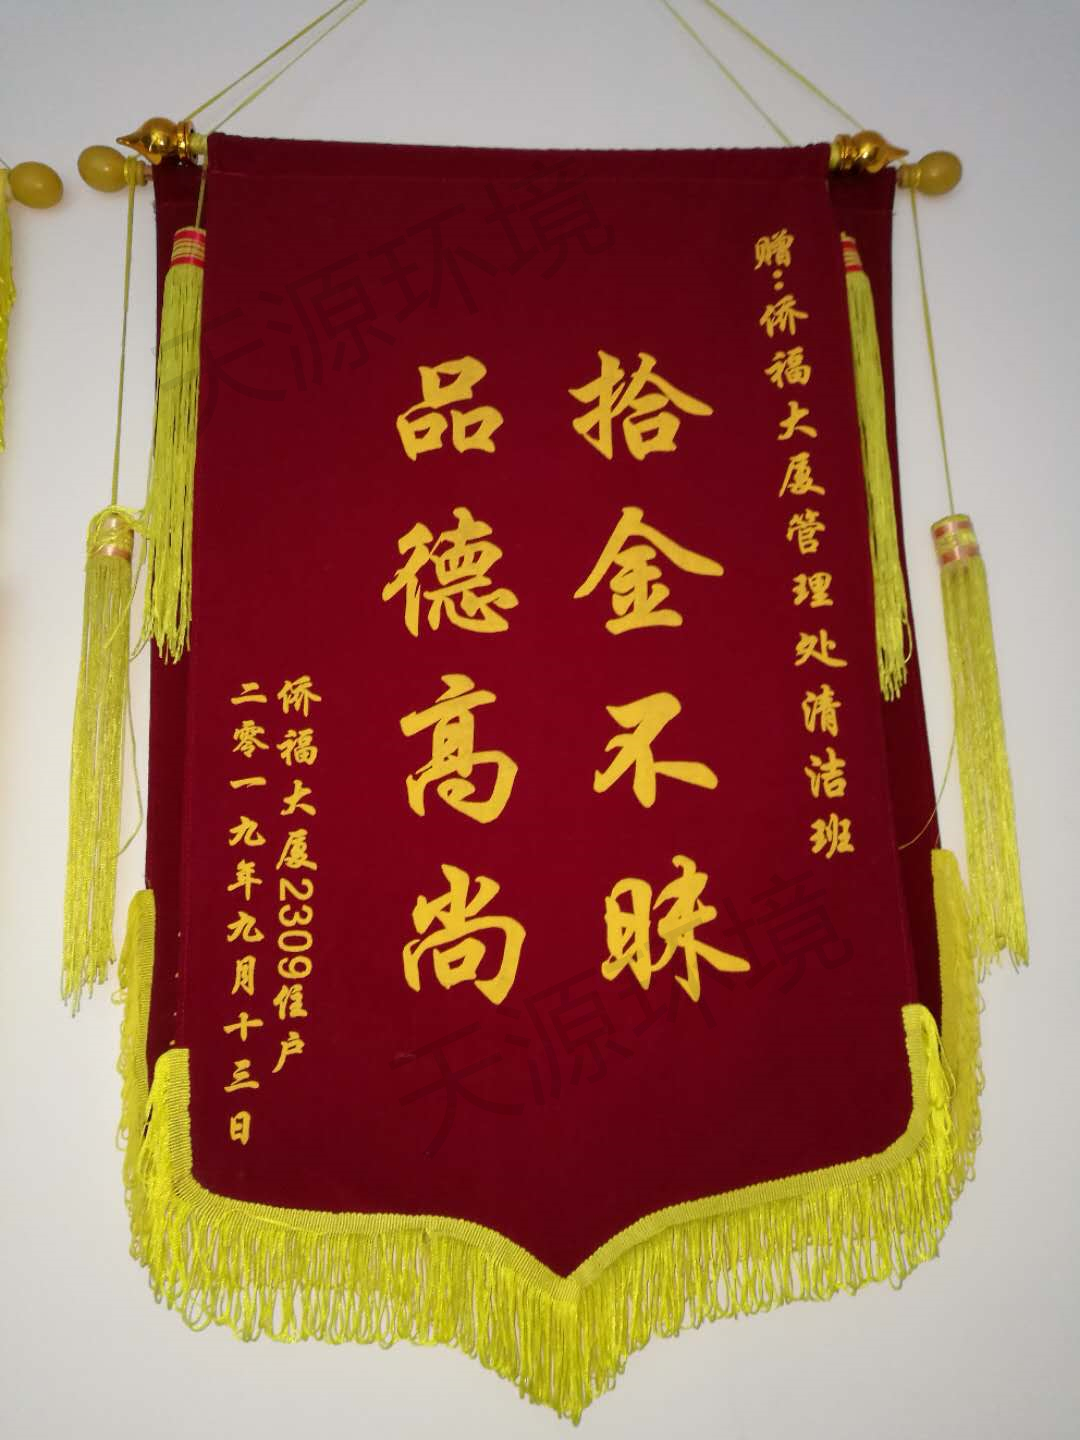 赠：侨福大厦管理处清洁班
拾金不昧
品德高尚
侨福大厦2309住户
二零一九年九月十三日
天源环境
天源环境